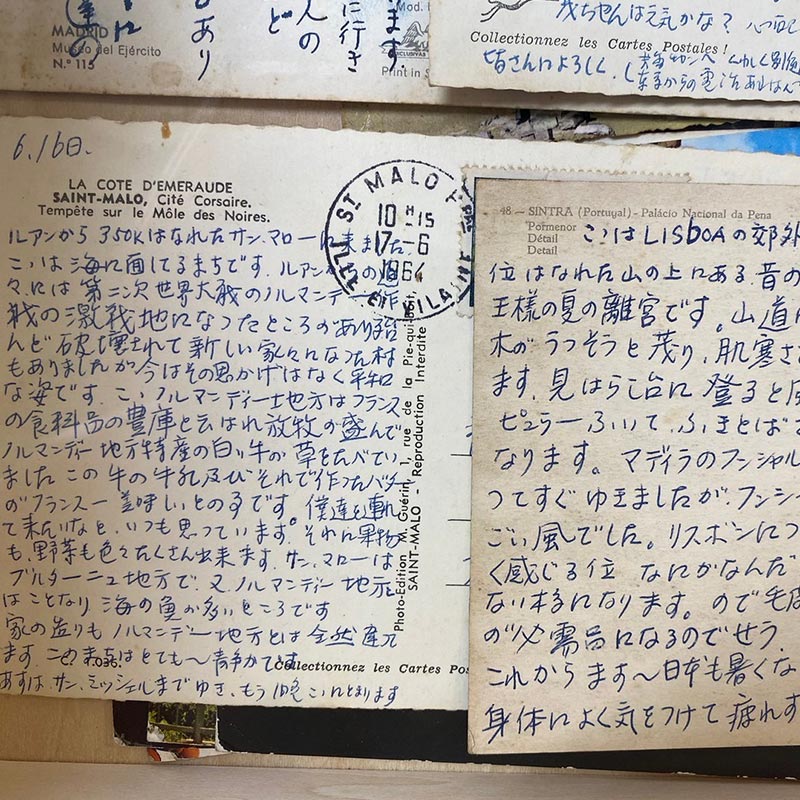 MADRID
Museo del Ejército
N.º 115
ます。
に行き
人の
ど
あり
Print in S
茂ちゃんは元気かな?
Collectionnez les Cartes Postales !
皆さんによろしく。
6.16日.
LA COTE D'EMERAUDE
SAINT-MALO, Cité Corsaire.
Tempête sur le Môle des Noires.
ST MALO
10 H 15
17-6
1964
ILLE ET VILAINE
ルアンから350Kはなれたサン.マローに来ました
ここは海に面してるまちです.ルアンからの道
々には第二次世界大戦のノルマンデー作
戦の激戦地になったところがあり殆
んど破壊されて新しい家々になった村
もありましたが今はその思かげはなく平和
な姿です.ここノルマンディー地方はフランス
の食料品の豊庫と云はれ放牧が盛んで
ノルマンデー地方特産の白い牛が草をたべてい
ました この牛の牛乳及びそれで作ったバター
がフランス一美味しいとの事です.僕達も連れ
て来たいなと、いつも思っています.それに果物
も、野菜も色々たくさん出来ます.サン.マローは
ブルターニュ地方で、又ノルマンディー地方と
はことなり 海の魚が多いところです
家の造りもノルマンデー地方とは全然違い
ます この まちはとても〜静かです
あすは.サン.ミッシェルまでゆき、もう1晩ここにとまります
Photo-Edition M. Guérin, 1, rue de la Pie-qui-boit
SAINT-MALO - Reproduction Interdite
Collectionnez les Cartes Pos
48 — SINTRA (Portugal) - Palácio Nacional da Pena
Pormenor
Détail
Detail
ここはLISBOAの郊外
位はなれた山の上にある昔の
王様の夏の離宮です。山道
木がうつそうと茂り、肌寒さ
ます.見はらし台に登ると風
ピュラーふいて、ふきとばさ
なります。マディラのフンシャル
つてすぐゆきましたが、フンシ
ごい風でした。リスボンにつ
く感じる位 なにかなんだ
ない様になります。ので毛皮
が必需品になるのでせう.
これからます〜日本も暑くな
身体によく気をつけて疲れす